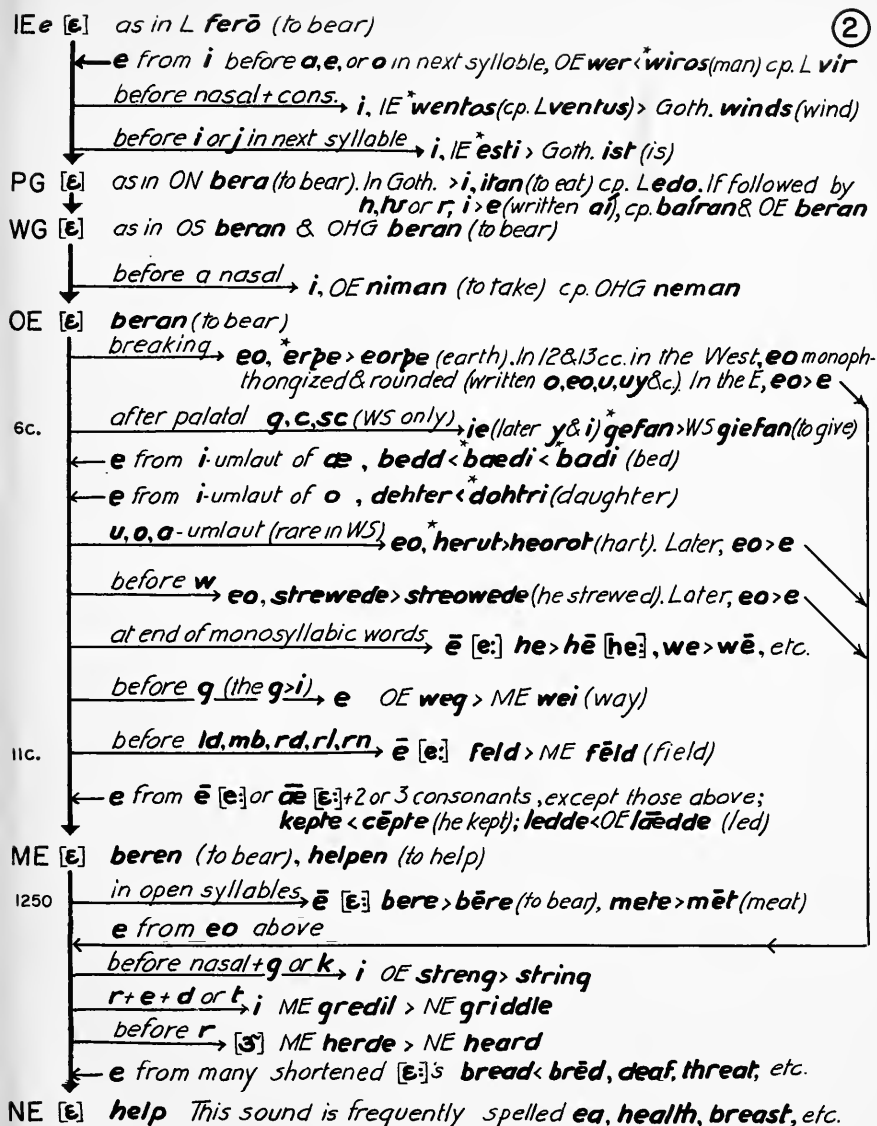 IE e [ɛ] as in L ferō (to bear) ②
e from i before a, e, or o in next syllable, OE wer < *wiros (man) cp. L vir
before nasal + cons. i, IE *wentos (cp. L ventus) > Goth. winds (wind)
before i or j in next syllable i, IE *esti > Goth. ist (is)
PG [ɛ] as in ON bera (to bear). In Goth. > i, itan (to eat) cp. L edo. If followed by
h, hw or r, i > e (written aí), cp. baíran & OE beran
WG [ɛ] as in OS beran & OHG beran (to bear)
before a nasal i, OE niman (to take) cp. OHG neman
OE [ɛ] beran (to bear)
breaking eo, *erþe > eorþe (earth). In 12 & 13 cc. in the West, eo monoph-
thongized & rounded (written o, eo, u, uy &c). In the E, eo > e
6c. after palatal g, c, sc (WS only) ie (later y & i) *gefan > WS giefan (to give)
e from i-umlaut of æ, bedd < *bædi < *badi (bed)
e from i-umlaut of o, dehter < *dohtri (daughter)
u, o, a-umlaut (rare in WS) eo, *herut > heorot (hart). Later, eo > e
before w eo, strewede > streowede (he strewed). Later, eo > e
at end of monosyllabic words ē [e:] he > hē [he:], we > wē, etc.
before g (the g > i) e OE weg > ME wei (way)
11c. before ld, mb, rd, rl, rn ē [e:] feld > ME fēld (field)
e from ē [e:] or ǣ [ɛ:] + 2 or 3 consonants, except those above;
kepte < cēpte (he kept); ledde < OE lǣdde (led)
ME [ɛ] beren (to bear), helpen (to help)
1250 in open syllables ē [ɛ:] bere > bēre (to bear), mete > mēt (meat)
e from eo above
before nasal + g or k i OE streng > string
r + e + d or t i ME gredil > NE griddle
before r [ɝ] ME herde > NE heard
e from many shortened [ɛ:]'s bread < brēd, deaf, threat, etc.
NE [ɛ] help This sound is frequently spelled ea, health, breast, etc.